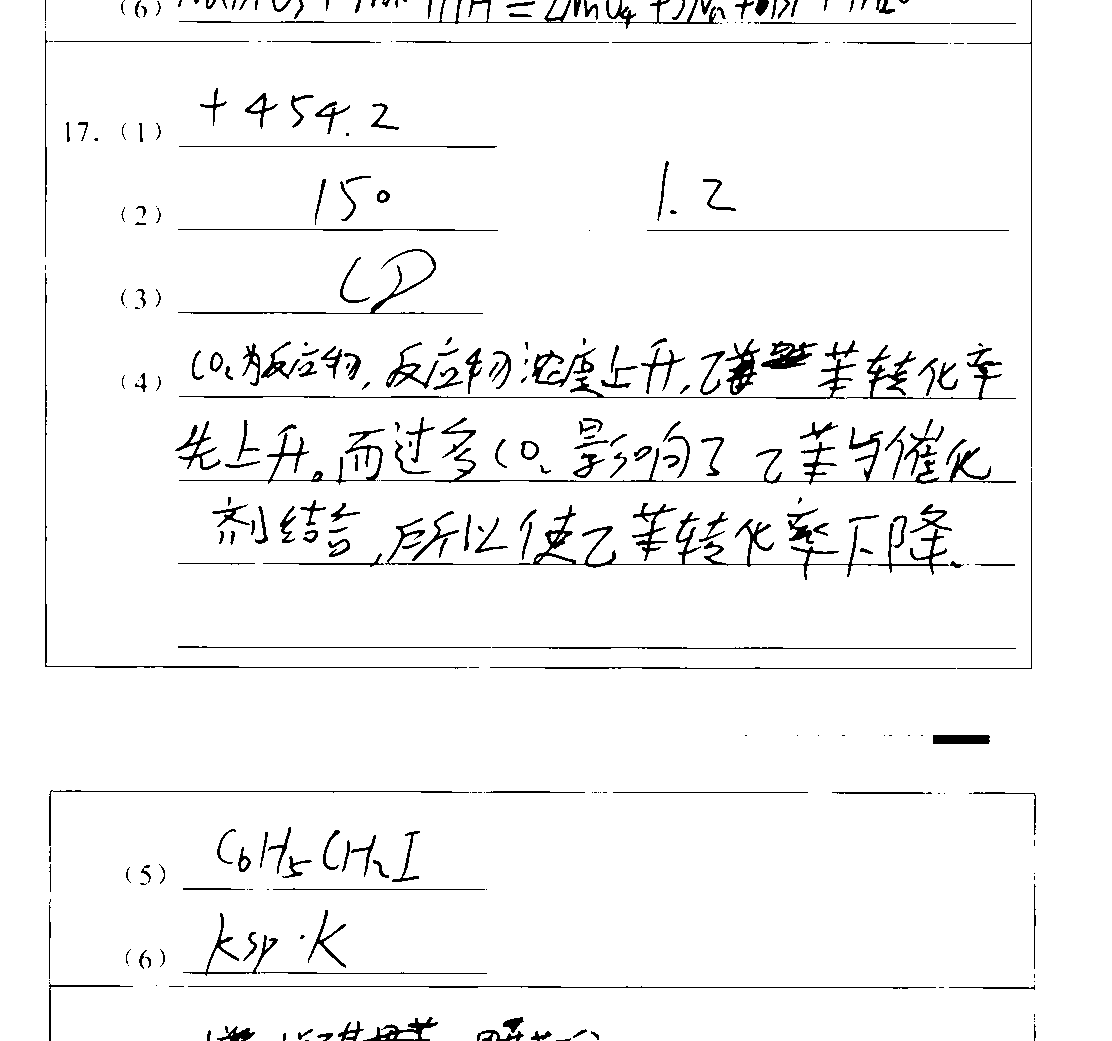 (6)
17. (1) +454.2
(2) 150 1.2
(3) CD
(4) CO₂为反应物,反应物浓度上升,乙苯转化率
先上升。而过多CO₂影响了乙苯与催化
剂结合,所以使乙苯转化率下降.
(5) C₆H₅CH₂I
(6) Ksp·K